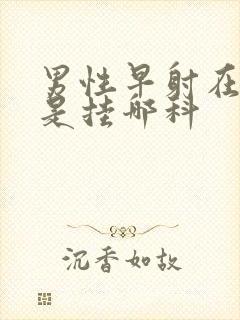 男性早射在
是挂哪科
沉香如故